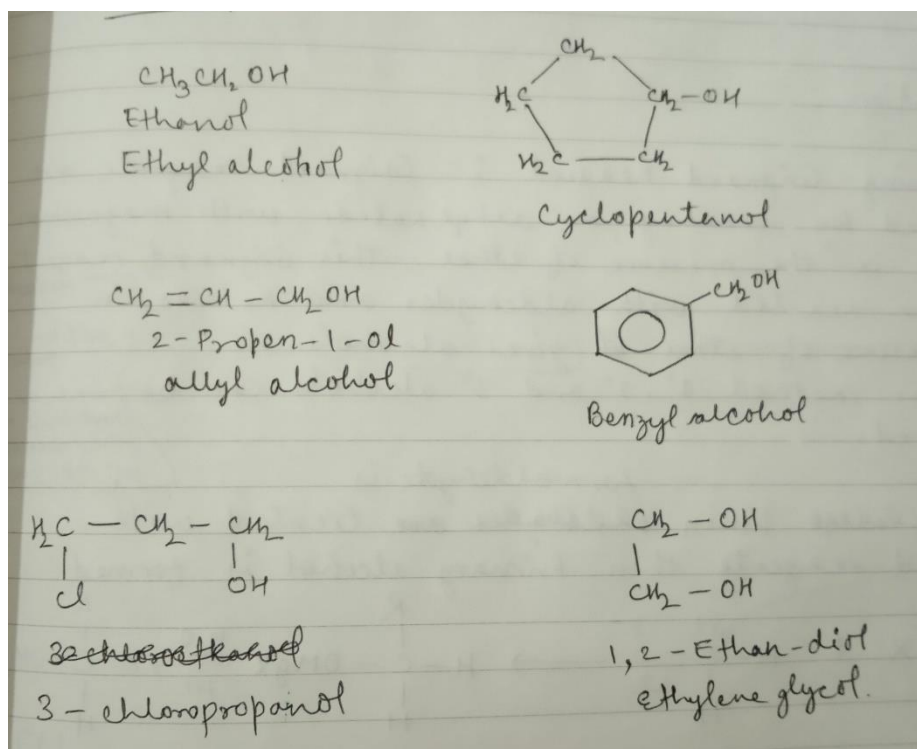 CH3CH2OH
Ethanol
Ethyl alcohol
CH2
H2C CH2-OH
H2C — CH2
Cyclopentanol
CH2=CH-CH2OH
2-Propen-1-ol
allyl alcohol
CH2OH
Benzyl alcohol
H2C — CH2 - CH2
Cl OH
3-chloropropanol
CH2 - OH
CH2 - OH
1,2-Ethan-diol
Ethylene glycol.